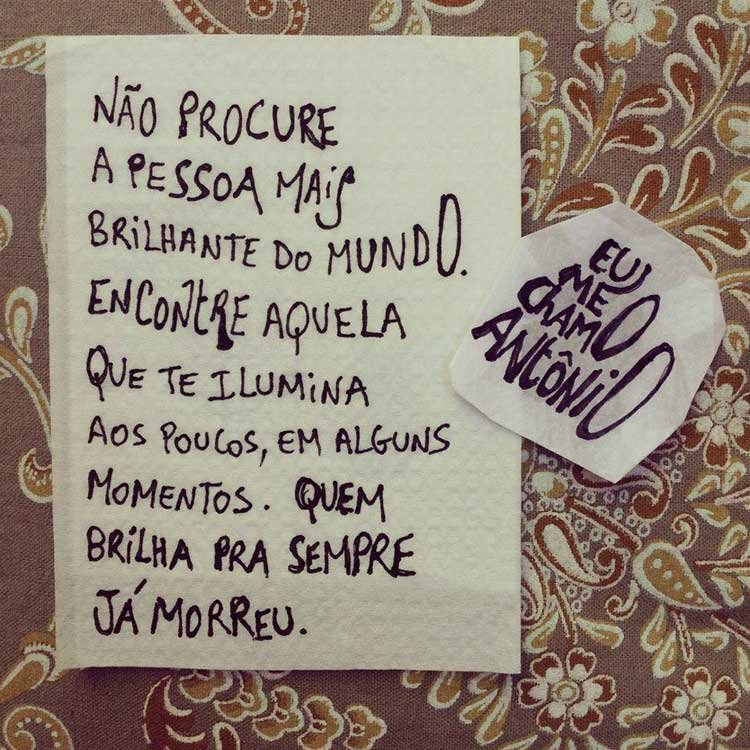 NÃO PROCURE
A PESSOA MAIS
BRILHANTE DO MUNDO.
ENCONTRE AQUELA
QUE TE ILUMINA
AOS POUCOS, EM ALGUNS
MOMENTOS. QUEM
BRILHA PRA SEMPRE
JÁ MORREU.
EU
ME
CHAMO
ANTÔNIO